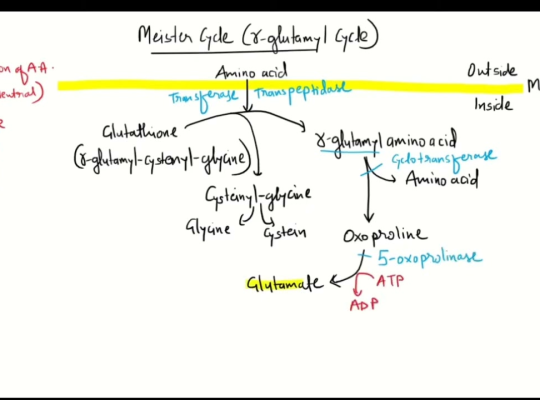 Meister Cycle (γ-glutamyl Cycle)
on of AA.
Amino acid
Outside
entrial)
Transferase
Transpeptidase
M
Inside
Glutathione
γ-glutamyl amino acid
(γ-glutamyl-cystenyl-glycine)
Cyclotransferase
Amino acid
Cysteinyl-glycine
Glycine
Cystein
Oxoproline
5-oxoprolinase
Glutamate
ATP
ADP